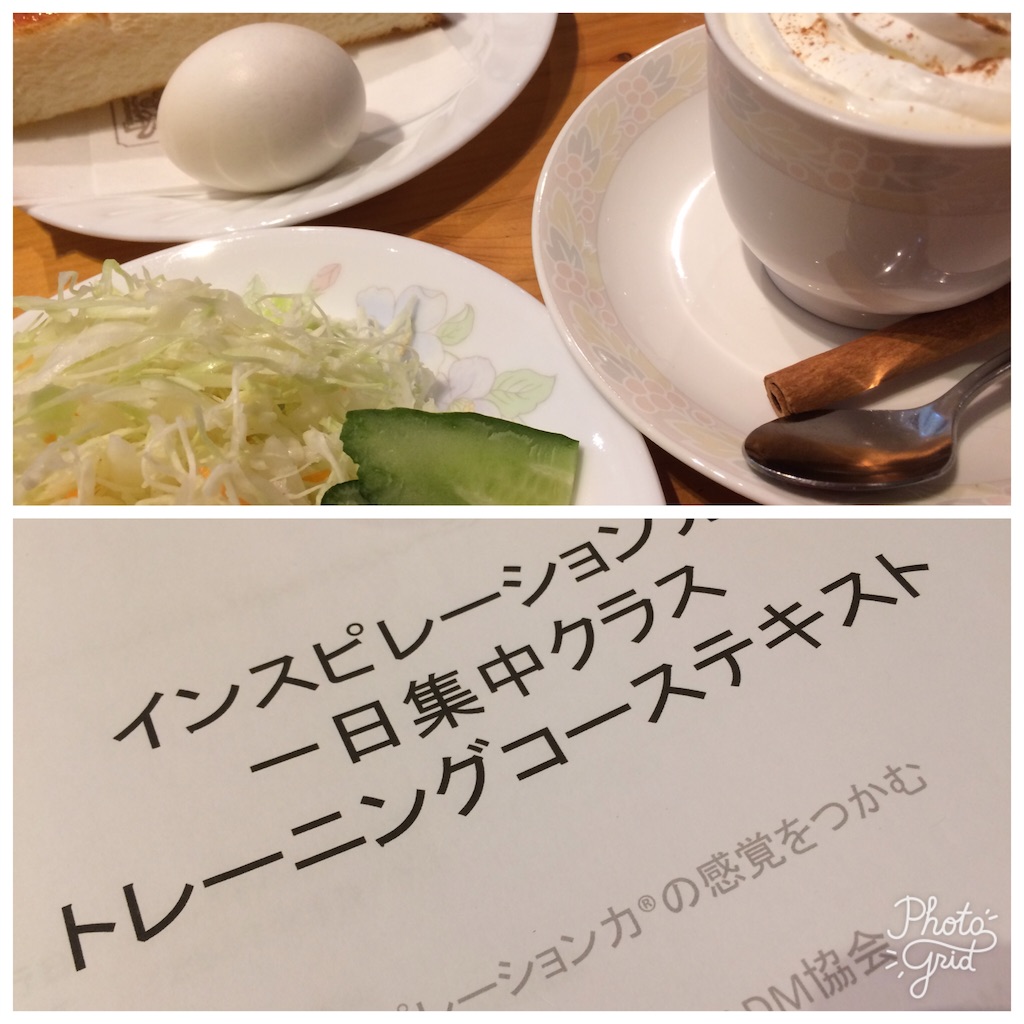 インスピレーション力
一日集中クラス
トレーニングコーステキスト
ピレーション力®の感覚をつかむ
DM協会
Photo
Grid